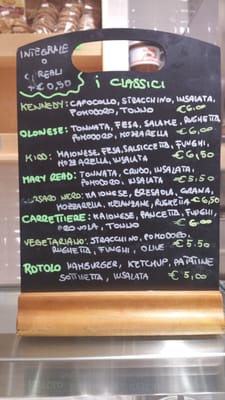 INTEGRALE
O
CEREALI
+ € 0,50
I CLASSICI
KENNEDY: CAPOCOLLO, STRACCHINO, INSALATA,
POMODORO, TONNO €6,00
OLONESE: TONNATA, FESA, SALAME, RUGHETTA
POMODORO, MOZZARELLA €6,00
KIDD: MAIONESE, FESA, SALSICCETTA, FUNGHI,
MOZZARELLA, INSALATA €6,50
MARY READ: TONNATA, CRUDO, INSALATA,
POMODORO, INSALATA €5.50
CORSARO NERO: MAIONESE, BRESAOLA, GRANA,
MOZZARELLA, MELANZANE, RUGHETTA €6,50
CARRETTIERE: MAIONESE, PANCETTA, FUNGHI,
PROVOLA, TONNO €6.00
VEGETARIANO: STRACCHINO, POMODORO,
RUGHETTA, FUNGHI, OLIVE €5.50
ROTOLO HAMBURGER, KETCHUP, PATATINE
SOTTILETTA, INSALATA €5,00